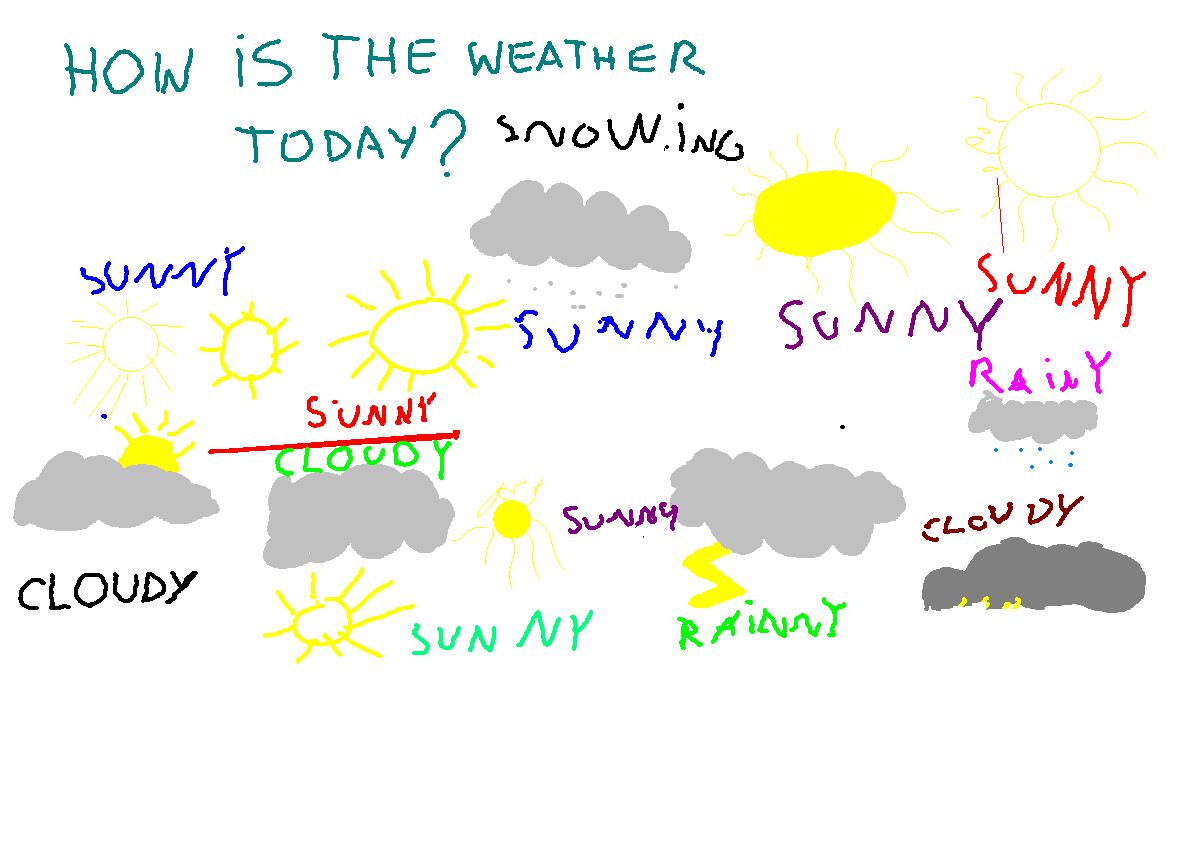 HOW iS THE WEATHER
TODAY?
SNOW.iNG
SUNNY
SUNNY
SUNNY
SUNNY
RAiNY
SUNNY
CLOUDY
SUNNY
CLOUDY
CLOUDY
SUNNY
RAiNNY